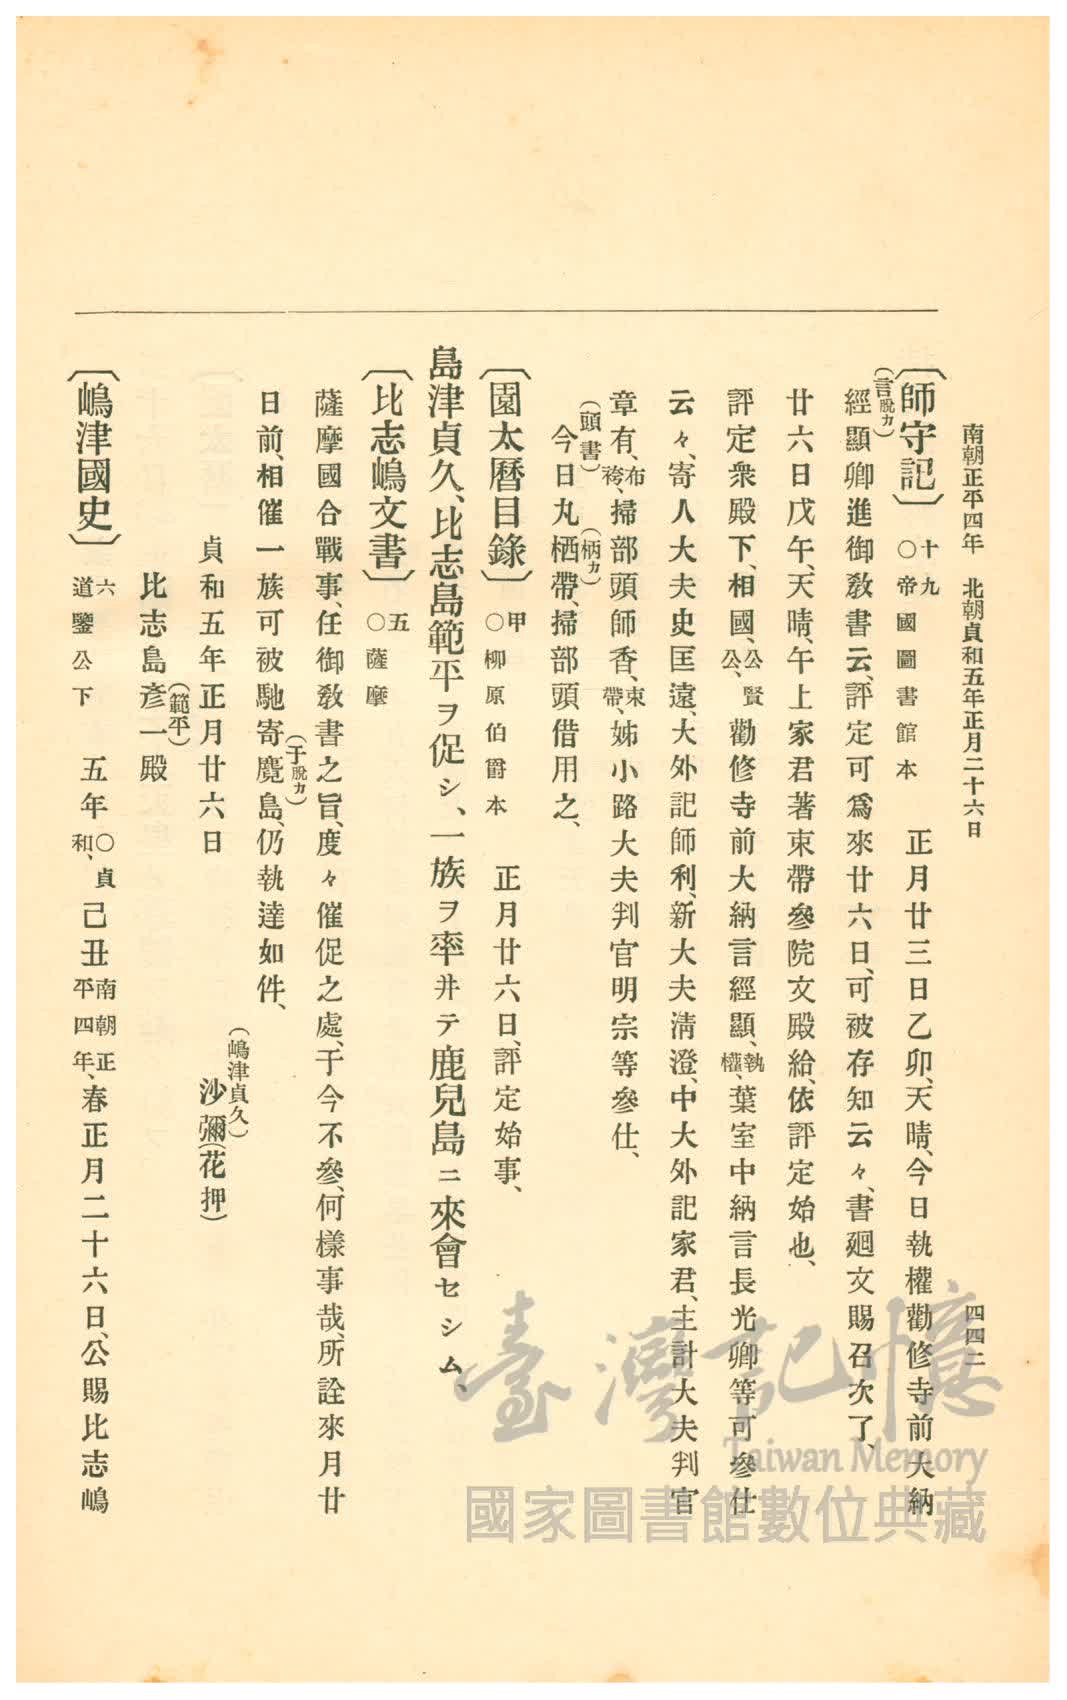 南朝正平四年　北朝貞和五年正月二十六日　四四二
〔師守記〕十九○帝國圖書館本　正月廿三日乙卯、天晴、今日執權勸修寺前大納
(言脫カ)
經顯卿進御敎書云、評定可爲來廿六日、可被存知云々、書廻文賜召次了、
廿六日戊午、天晴、午上家君著束帶參院文殿給、依評定始也、
評定衆殿下、相國、公賢公、勸修寺前大納言經顯、執權、葉室中納言長光卿等可參仕
云々、寄人大夫史匡遠、大外記師利、新大夫淸澄、中大外記家君、主計大夫判官
章有、布袴、掃部頭師香、束帶、姊小路大夫判官明宗等參仕、
(頭書)　(柄カ)
今日丸栖帶、掃部頭借用之、
〔園太曆目錄〕甲○柳原伯爵本　正月廿六日、評定始事、
島津貞久、比志島範平ヲ促シ、一族ヲ率井テ鹿兒島ニ來會セシム、
〔比志嶋文書〕五○薩摩
薩摩國合戰事、任御敎書之旨、度々催促之處、于今不參、何樣事哉、所詮來月廿
(于脫カ)
日前、相催一族可被馳寄麑島、仍執達如件、
(嶋津貞久)
貞和五年正月廿六日　沙彌(花押)
(範平)
比志島彥一殿
〔嶋津國史〕六道鑒公下　五年○貞和、己丑南朝正平四年、春正月二十六日、公賜比志嶋
臺灣記憶
Taiwan Memory
國家圖書館數位典藏